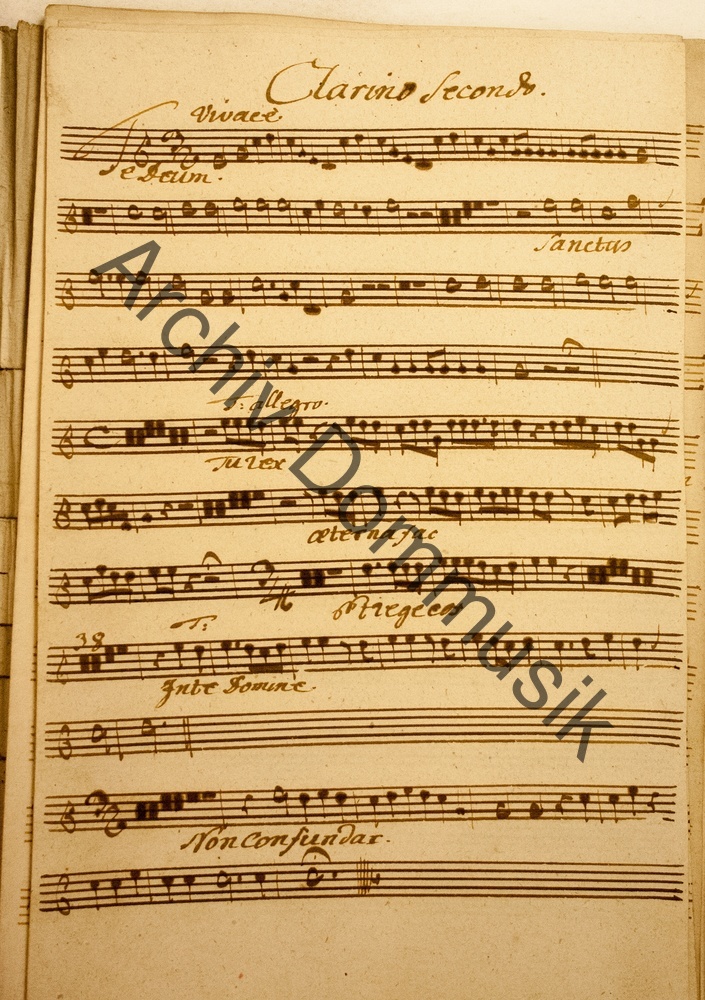 Clarino Secondo.
Vivace
Te Deum.
Sanctus
T: allegro.
Tu rex
æterna fac
et rege eos
38
T:
In te Domine
Non Confundar.
Archiv Dommusik